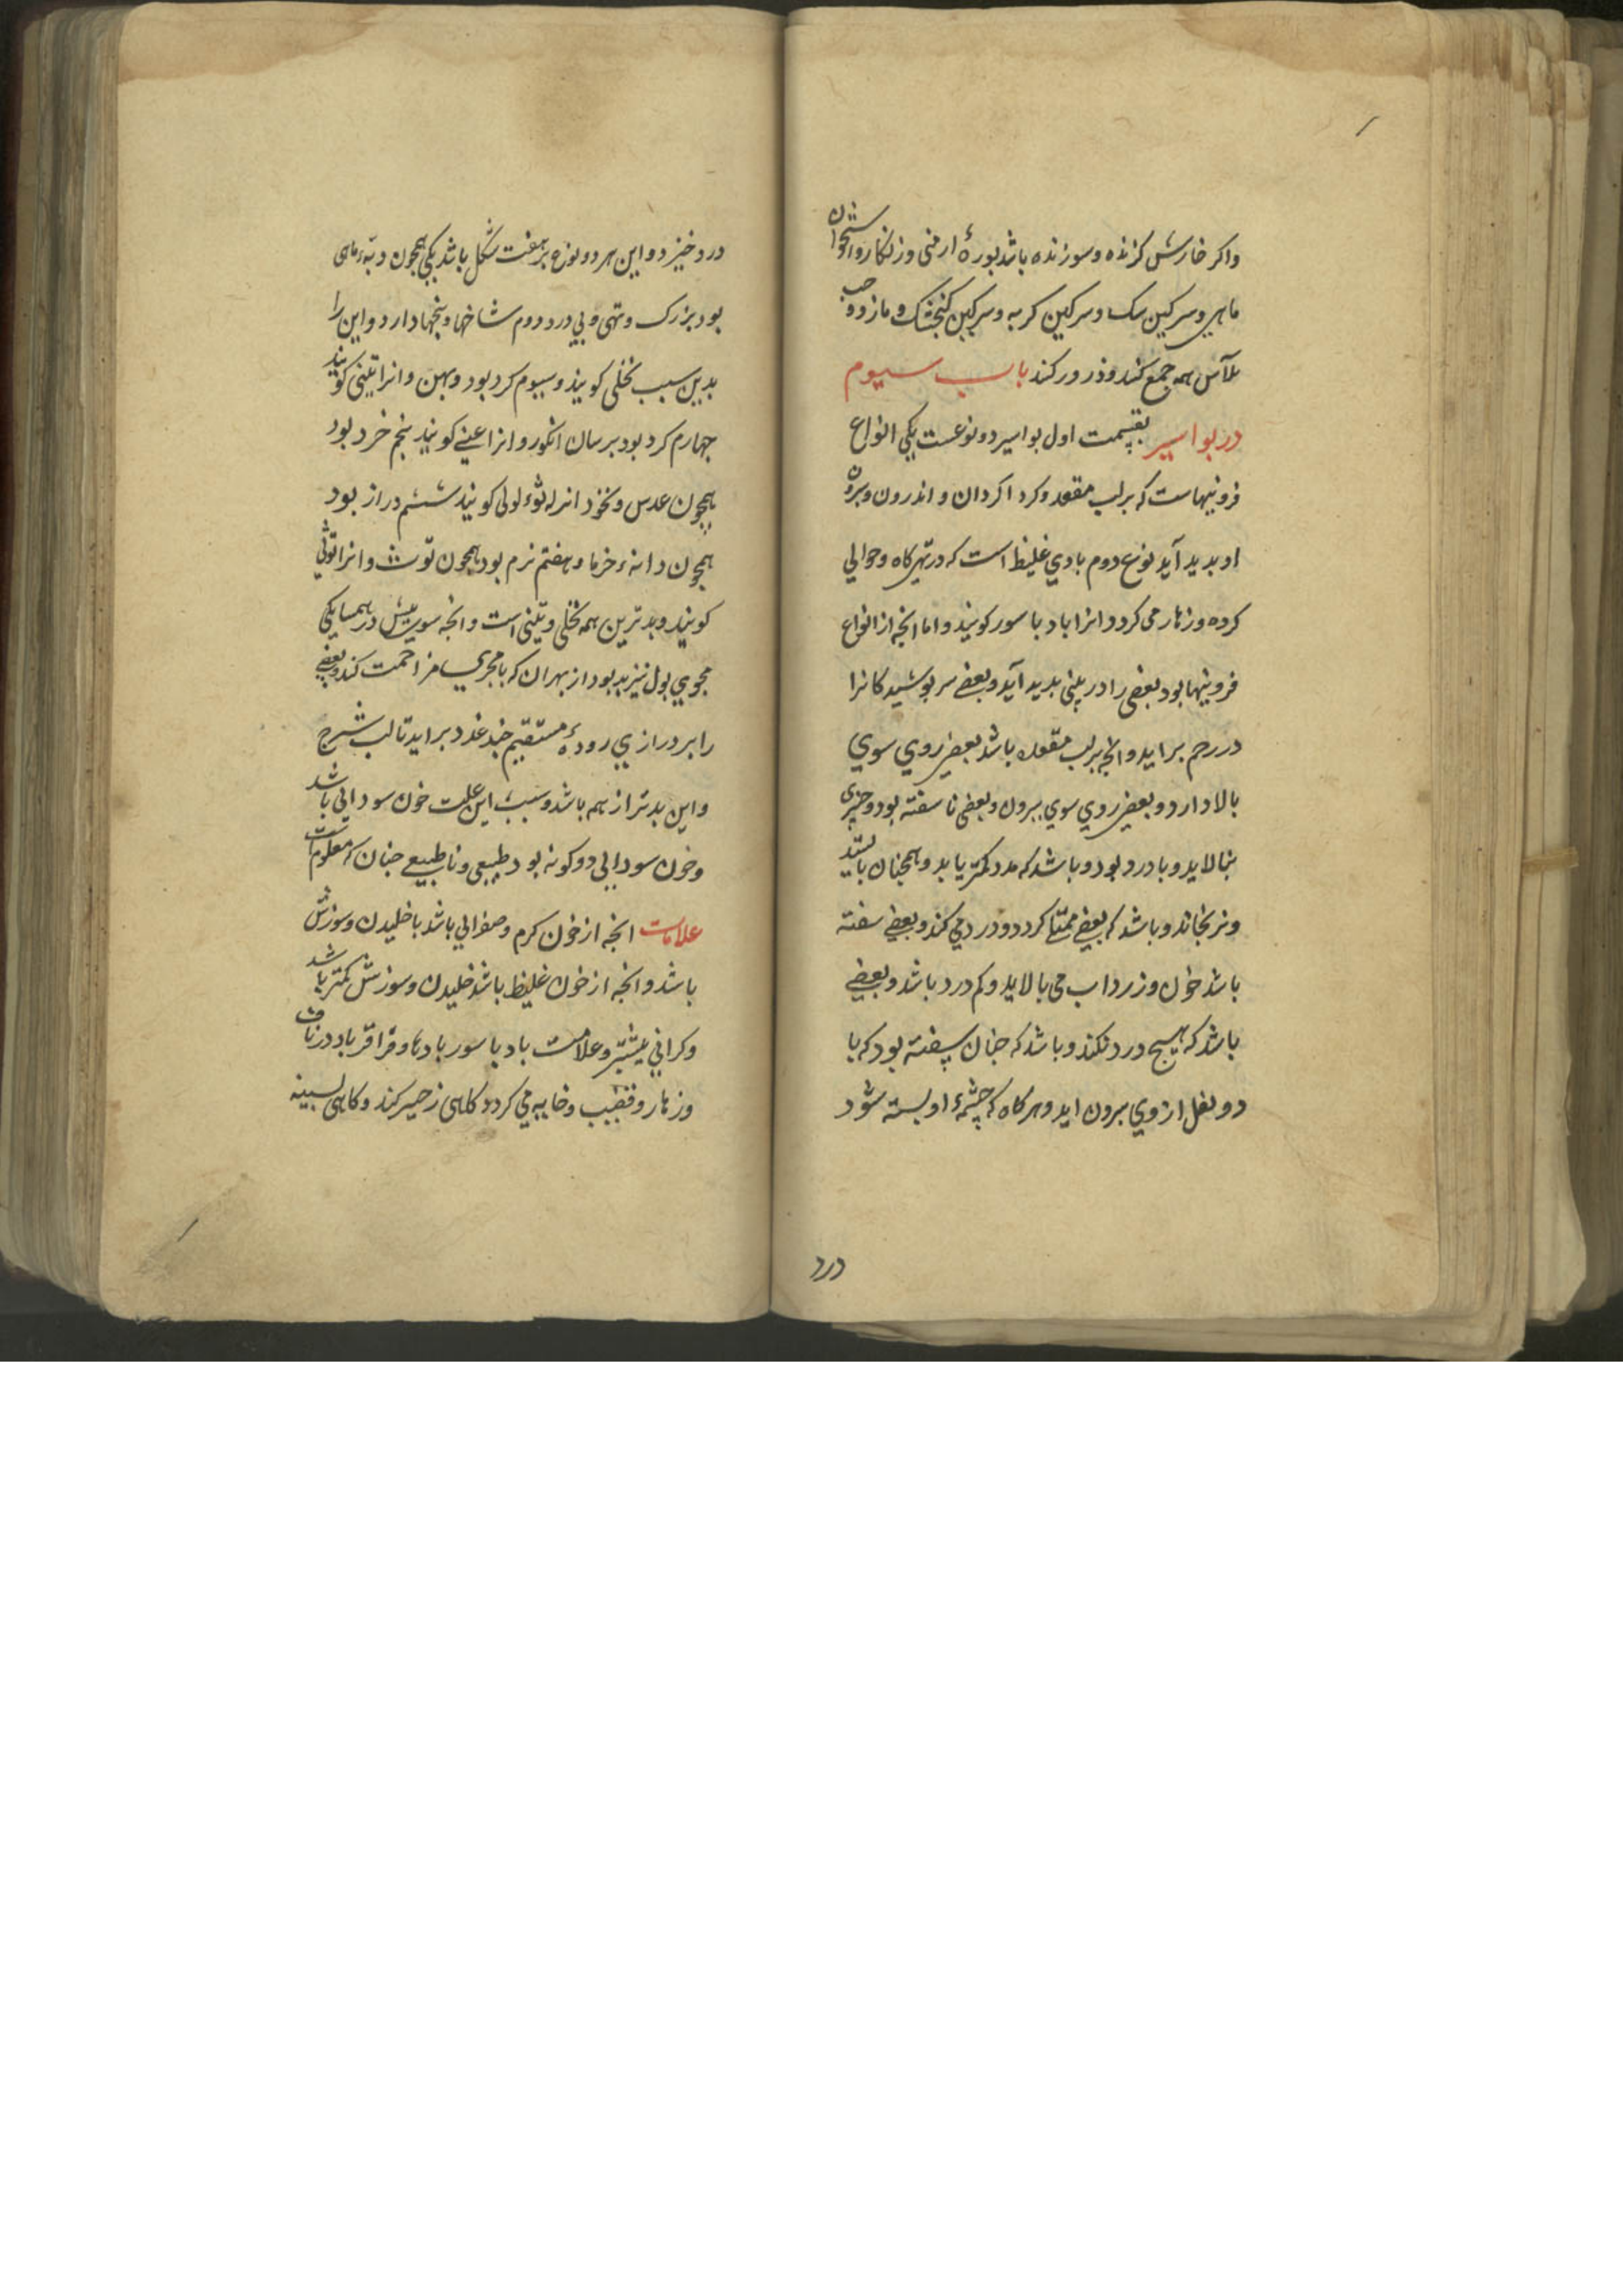 واکر خارش کزنده و سوزنده باشد بورهٔ ارمنی و زنکار و استخوان
ماهی و سرکین سک و سرکین کربه و سرکین کنجشک و مازو و حب
الآس همه جمع کنند و ذرور کنند باب سیوم
در بواسیر بقسمت اول بواسیر دو نوعست یکی انواع
فزونیهاست که بر لب مقعد و کرد اکرد ان و اندرون و بیرون
او بدید آید نوع دوم بادی غلیظ است که در تهیکاه و حوالی
کرده و زهار می کردد و انرا باد باسور کویند و اما انجه از انواع
فزونیها بود بعضی را در بینی بدید آید و بعضی سر پوشیدکانرا
در رحم براید و انجه بر لب مقعد باشد بعضی روی سوی
بالا دارد و بعضی روی سوی بیرون و بعضی ناسفته بود و چیزی
نبالاید و با درد بود و باشد که مدد کمتر یابد و همجنان بایستد
و نرنجاند و باشد که بعضی ممتلی کردد و درد می کند و بعضی سفته
باشد خون و زرداب می بالاید و کم درد باشد و بعضی
باشد که هیچ درد نکند و باشد که جنان سفته بود که با
دو ثفل از وی بیرون اید و هرکاه که چشمهٔ او بسته شود
درد
درد خیزد و این هر دو نوع بر هفت شکل باشد یکی همجون دنبهٔ ماهی
بود بزرک و تهی و بی درد دوم شاخها و بیخها دارد و این را
بدین سبب نخلی کویند و سیوم کرد بود و بهن و انرا تینی کویند
جهارم کرد بود بر سان انکور و انرا عنبی کویند بنجم خرد بود
همچون عدس و نخود انرا ثؤلولی کویند ششم دراز بود
همچون دانهٔ خرما و هفتم نرم بود همچون توث و انرا توثی
کویند و بدترین همه نخلی و تینی است و انجه سوی بیش در همسایکی
مجری بول نیز بد بود از بهر ان که با مجری مزاحمت کند و بعضی
را بر درازی رودهٔ مستقیم جند غدد براید تا لب شرج
و این بدتر از همه باشد و سبب این علت خون سودائی باشد
و خون سودائی دو کونه بود طبیعی و ناطبیعی جنان که معلومست
علامات انجه از خون کرم و صفرائی باشد با خلیدن و سوزش
باشد و انجه از خون غلیظ باشد خلیدن و سوزش کمتر باشد
و کرانی بیشتر و علامت باد باسور بادها و قراقر باد در ناف
و زهار و قضیب و خایه می کردد کاهی زحیر کند و کاهی بسینه